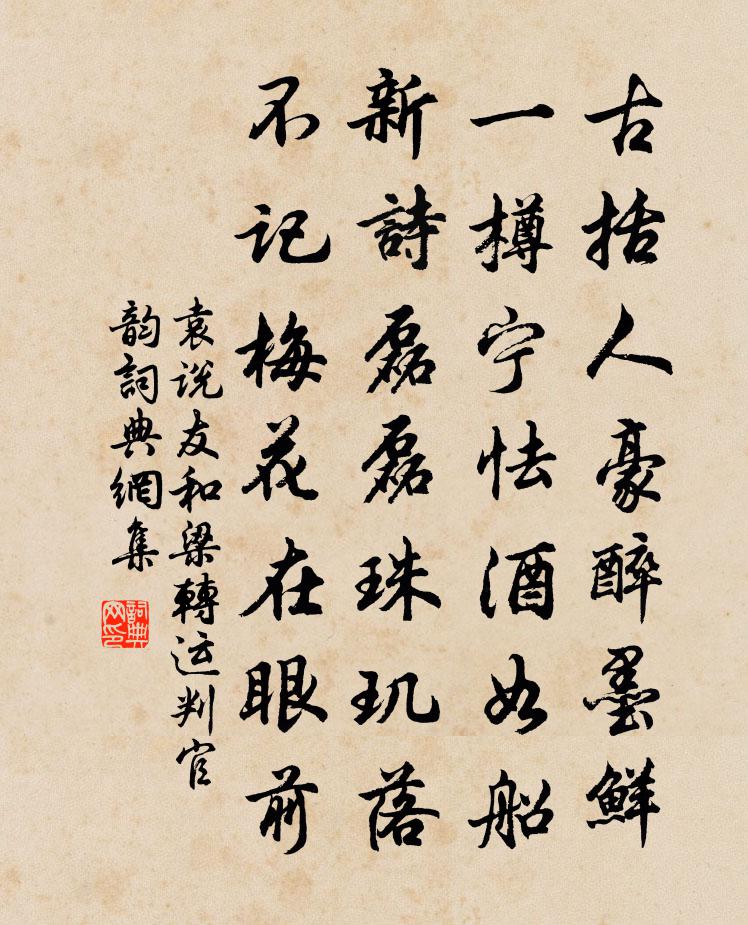 古括人豪醉墨鲜
一樽宁怯酒如船
新詩磊磊珠玑落
不记梅花在眼前
袁说友和梁轉运判官
韵詞典網集
詞典网印